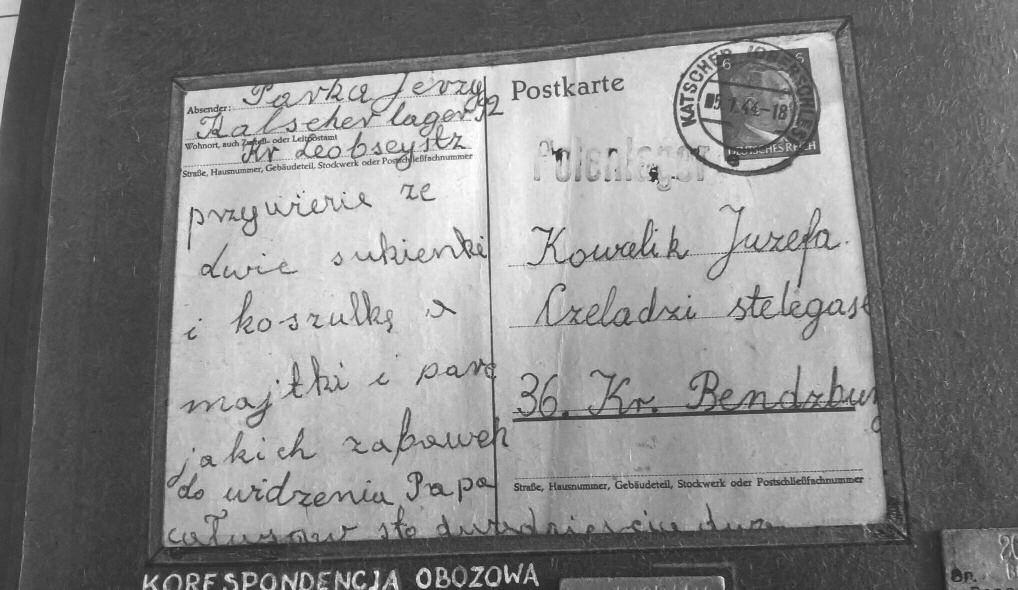 Absender: Parka Jerzy
Katscher lager 92
Wohnort, auch Zustell- oder Leitpostamt
Kr Leobseystz
Straße, Hausnummer, Gebäudeteil, Stockwerk oder Postschließfachnummer
przywierie ze
dwie sukienki
i koszulkę i
majtki i parę
jakich zabawek
do widzenia Papa
całusow sto dwadzieścia
Postkarte
KATSCHER (OBERSCHLES)
5.1.44-18
6 6
DEUTSCHES REICH
Polenlager
Kowalik Juzefa.
Czeladzi stelegas
36. Kr. Bendzbur
g
Straße, Hausnummer, Gebäudeteil, Stockwerk oder Postschließfachnummer
KORESPONDENCJA OBOZOWA